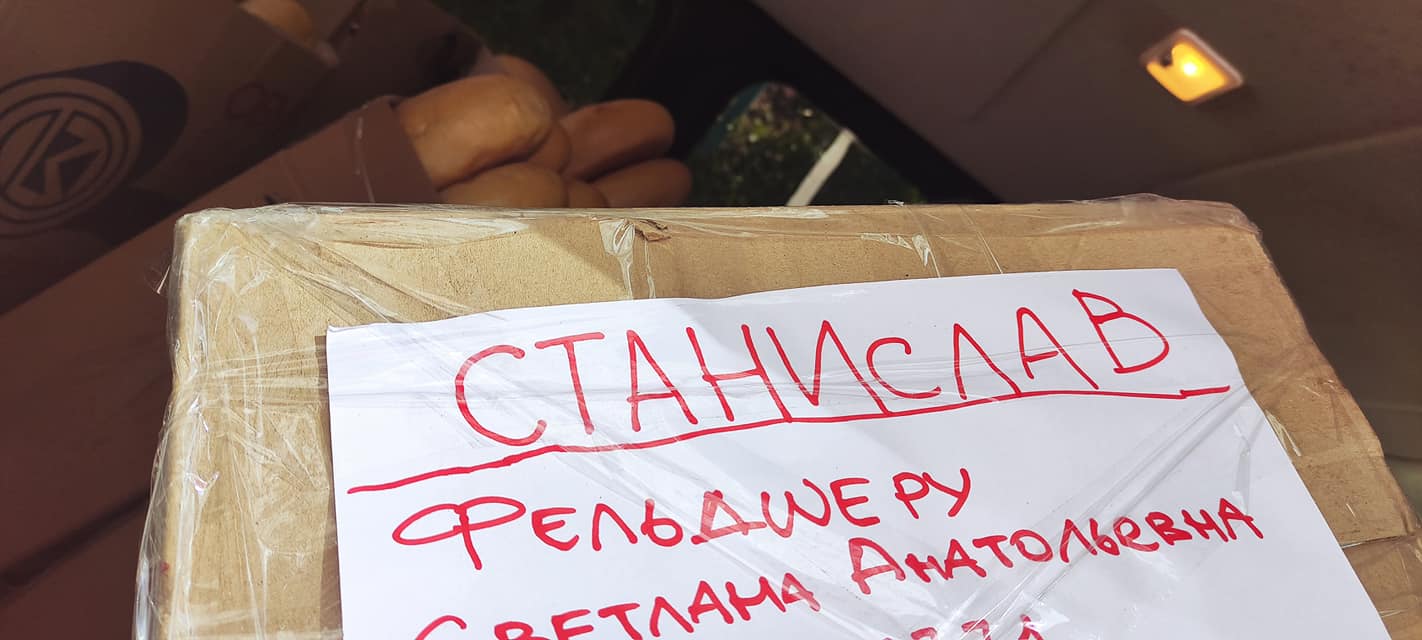 СТАНИСЛАВ
ФЕЛЬДШЕРУ
СВЕТЛАНА АНАТОЛЬЕВНА